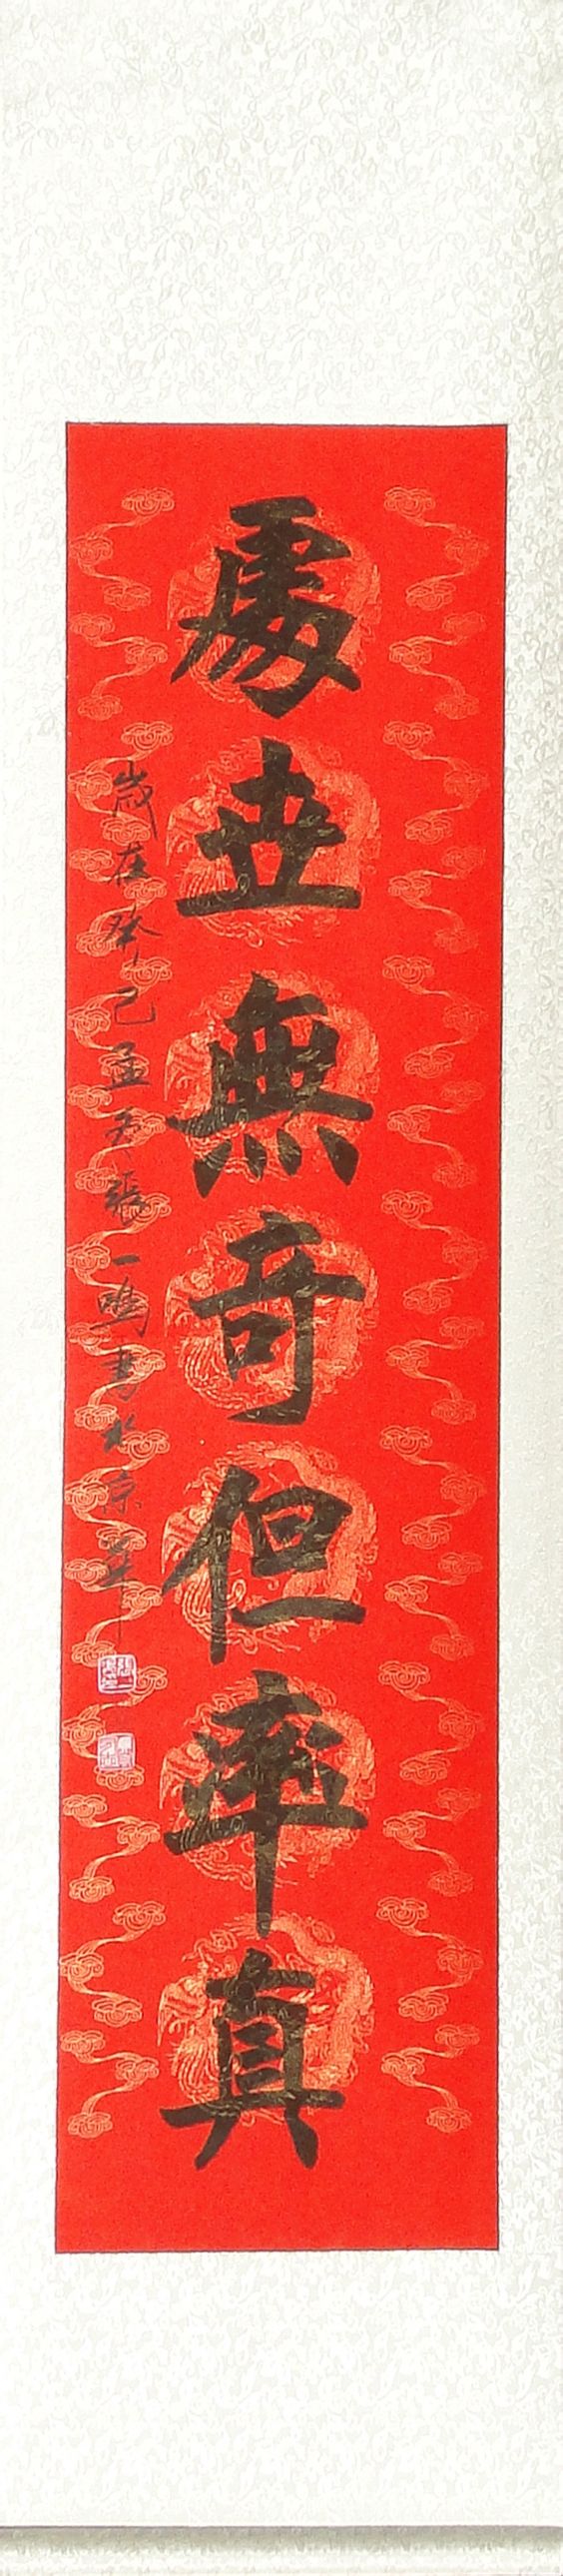 處世無奇但率真
歲在癸巳孟冬張一鳴書於京華